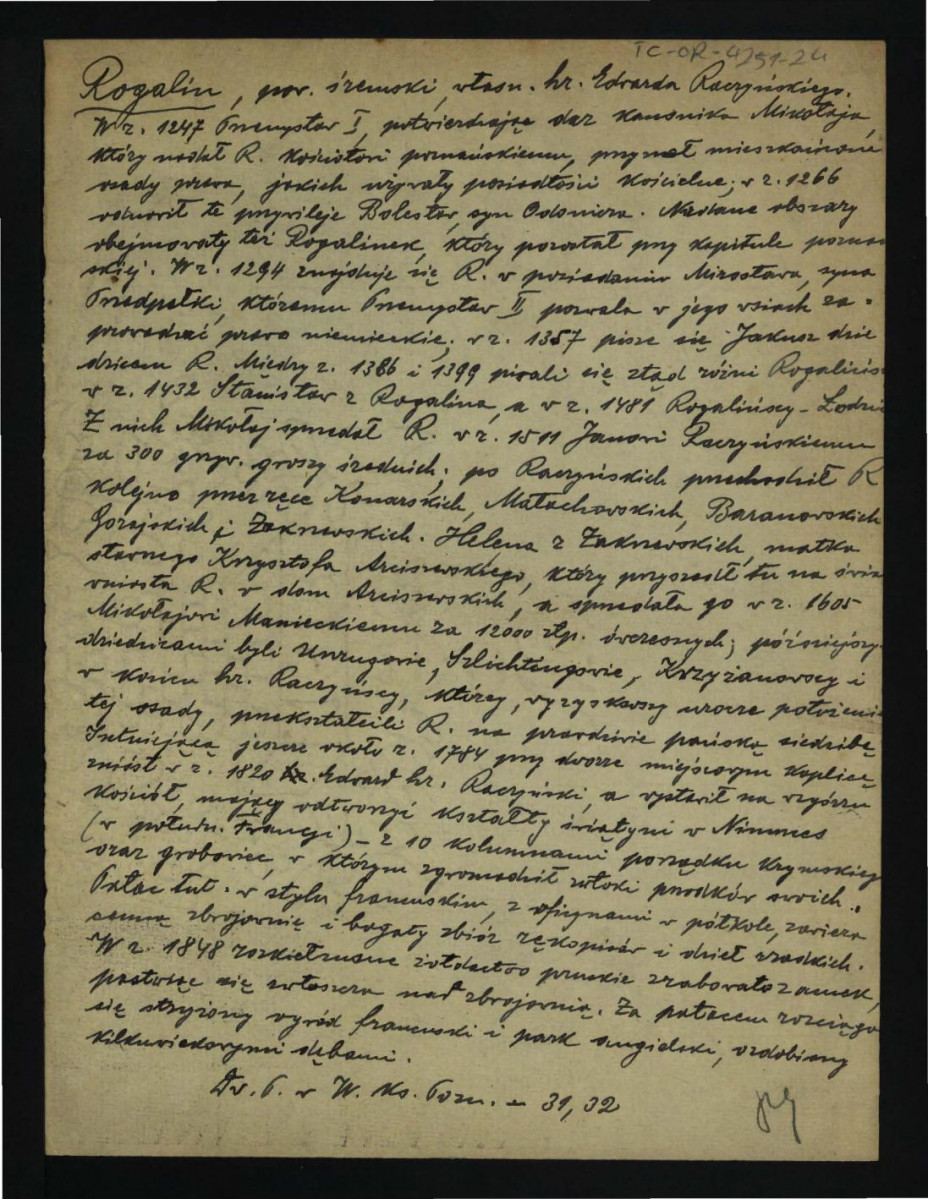 TC-OR-4251-24
Rogalin, pow. śremski, własn. hr. Edwarda Raczyńskiego.
W r. 1247 Przemysław I, potwierdzając dar kanonika Mikołaja,
który nadał R. kościołowi poznańskiemu, przyznał mieszkańcom
osady prawa, jakich używały posiadłości kościelne; w r. 1266
odnowił te przywileje Bolesław, syn Odonicza. Nadane obszary
obejmowały też Rogalinek, który pozostał przy kapitule poznań
skiej. W r. 1294 znajduje się R. w posiadaniu Mirosława, syna
Przedpełki, któremu Przemysław II pozwala w jego wsiach za-
prowadzać prawo niemieckie; w r. 1357 pisze się Jakusz dzie
dzicem R. Między r. 1386 i 1399 pisali się ztąd różni Rogalińs
w r. 1432 Stanisław z Rogalina, a w r. 1481 Rogalińscy-Łodzi
Z nich Mikołaj sprzedał R. w r. 1511 Janowi Raczyńskiemu
za 300 grzyw. groszy średnich; po Raczyńskich przechodził R
kolejno przez ręce Konarskich, Małachowskich, Baranowskich
Gorajskich i Zakrzewskich. Helena z Zakrzewskich, matka
sławnego Krzysztofa Arciszewskiego, który przyszedł tu na świa
wniosła R. w dom Arciszewskich, a sprzedała go w r. 1605
Mikołajowi Manieckiemu za 12000 złp. ówczesnych; późniejszy
dziedzicami byli Unrugowie, Szlichtingowie, Krzyżanowscy i
w końcu hr. Raczyńscy, którzy, wyzyskawszy urocze położenie
tej osady, przekształcili R. na prawdziwie pańską siedzibę
Istniejącą jeszcze około r. 1784 przy dworze miejscowym kaplicę
zniósł w r. 1820 Edward hr. Raczyński, a wystawił na wzgórzu
kościół, mający odtworzyć kształty świątyni w Nimmes
(w połudn. Francji) – z 10 kolumnami porządku krymskiego
oraz grobowiec, w którym zgromadził zwłoki przodków swoich.
Pałac tut. w stylu francuskim, z oficynami w półkole, zawiera
cenną zbrojownię i bogaty zbiór rękopisów i dzieł rzadkich.
W r. 1848 rozkiełznane żołdactwo pruskie zrabowało zamek,
pastwiąc się zwłaszcza nad zbrojownią. Za pałacem rozciąga
się strzyżony ogród francuski i park angielski, ozdobiony
kilkuwiekowymi dębami.
Dw. P. w W. Ks. Pozn. – 31, 32